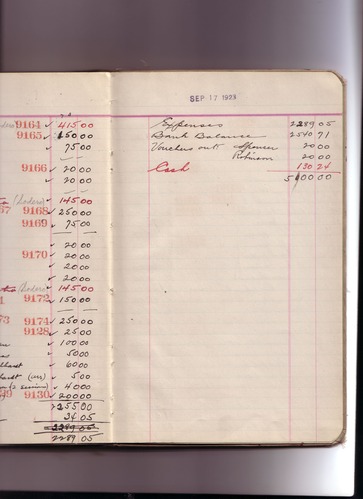 SEP 17 1923
9164 415.00
9165 150.00
75.00
9166 20.00
20.00
(Lodero) 145.00
9168 250.00
9169 75.00
20.00
9170 20.00
20.00
20.00
(Lodero) 145.00
9172 150.00
9174 250.00
9128 25.00
100.00
50.00
60.00
5.00
40.00
9130 200.00
2255.00
34.05
2289.05
2289.05
Expenses 2289.05
Bank Balance 2540.71
Vouchers out Spencer 20.00
Robinson 20.00
Cash 130.24
5000.00